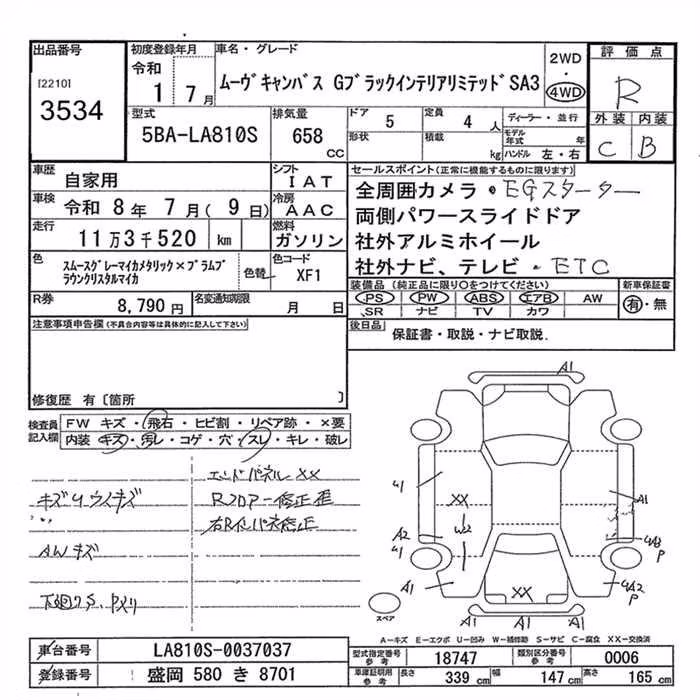 出品番号
[2210]
3534
初度登録年月
令和
1 7月
車名・グレード
ムーヴキャンバス GブラックインテリアリミテッドSA3
2WD
・
4WD
評価点
R
外装 内装
C B
型式
5BA-LA810S
排気量
658
CC
ドア
5
定員
4人
形状
積載
kg
ディーラー・並行
モデル年式 年
ハンドル 左・右
車歴
自家用
シフト
IAT
車検
令和 8年 7月(9日)
冷房
AAC
走行
11万3千520 km
燃料
ガソリン
色
スムースグレーマイカメタリック×プラムブ
ラウンクリスタルマイカ
色替
色コード
XF1
R券
8,790円
名変通知期限
月 日
セールスポイント(正常に機能するものに限ります)
全周囲カメラ・EGスターター
両側パワースライドドア
社外アルミホイール
社外ナビ、テレビ・ETC
装備品(純正品に限り○をつけてください)
PS PW ABS エアB AW
SR ナビ TV カワ
新車保証書
有・無
後日品
保証書・取説・ナビ取説.
注意事項申告欄(不具合内容等は具体的に記入して下さい)
修復歴 有〔箇所 〕
検査員
記入欄
FW キズ・飛石・ヒビ割・リペア跡・×要
内装 キズ・汚レ・コゲ・穴・スレ・キレ・破レ
エンドパネルXX
キズ
Rフロアー修正歪
右Rインパネ修正
AWキズ
下廻りS、
A1
A1
A2
A1
XX
W2
A1
XX
A1
A1
A1
P
P
スペア
A-キズ E-エクボ U-凹み W-補修跡 S-サビ C-腐食 XX-交換済
車台番号
LA810S-0037037
登録番号
盛岡 580 き 8701
型式指定番号
参考
18747
類別区分番号
参考
0006
車庫証明用
参考
長さ
339 cm
幅
147 cm
高さ
165 cm